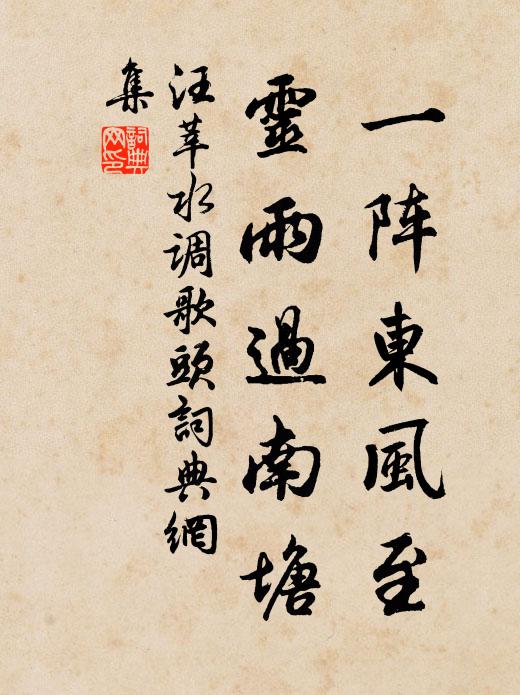 一阵東風至
靈雨過南塘
汪莘水調歌頭詞典網
集
詞典
网印